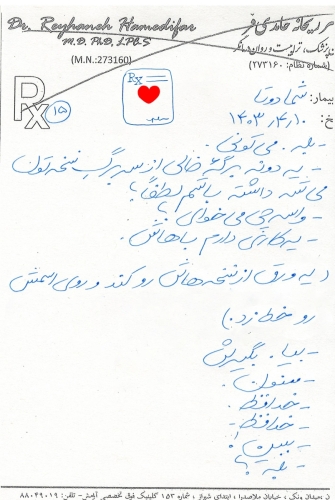 Dr. Reyhaneh Hamedifar
M.D. PhD, LPB-S
(M.N.:273160)
ریحانه حامدی فر
(شماره نظام: ۲۷۳۱۶۰)
Rx
Rx
۱۵
بیمار: شما دو تا
خ: ۱۴۰۳/۴/۱۰
- بله. می‌تونی.
- یه دونه برگه‌ی خالی از سر برگ نسخه‌تون
می‌شه داشته باشم لطفاً؟
- واسه چی می‌خوای؟
- یه کاری دارم باهاش.
(یه ورق از نسخه‌هاش رو کند و روی اسمش
رو خط زد.)
- بیا. بگیرش.
- ممنون.
- خداحافظ.
- خداحافظ.
- ببین!
- بله؟
میدان ونک، خیابان ملاصدرا، ابتدای شیراز، شماره ۱۵۲ کلینیک فوق تخصصی آرامش- تلفن: ۸۸۰۴۹۰۱۹